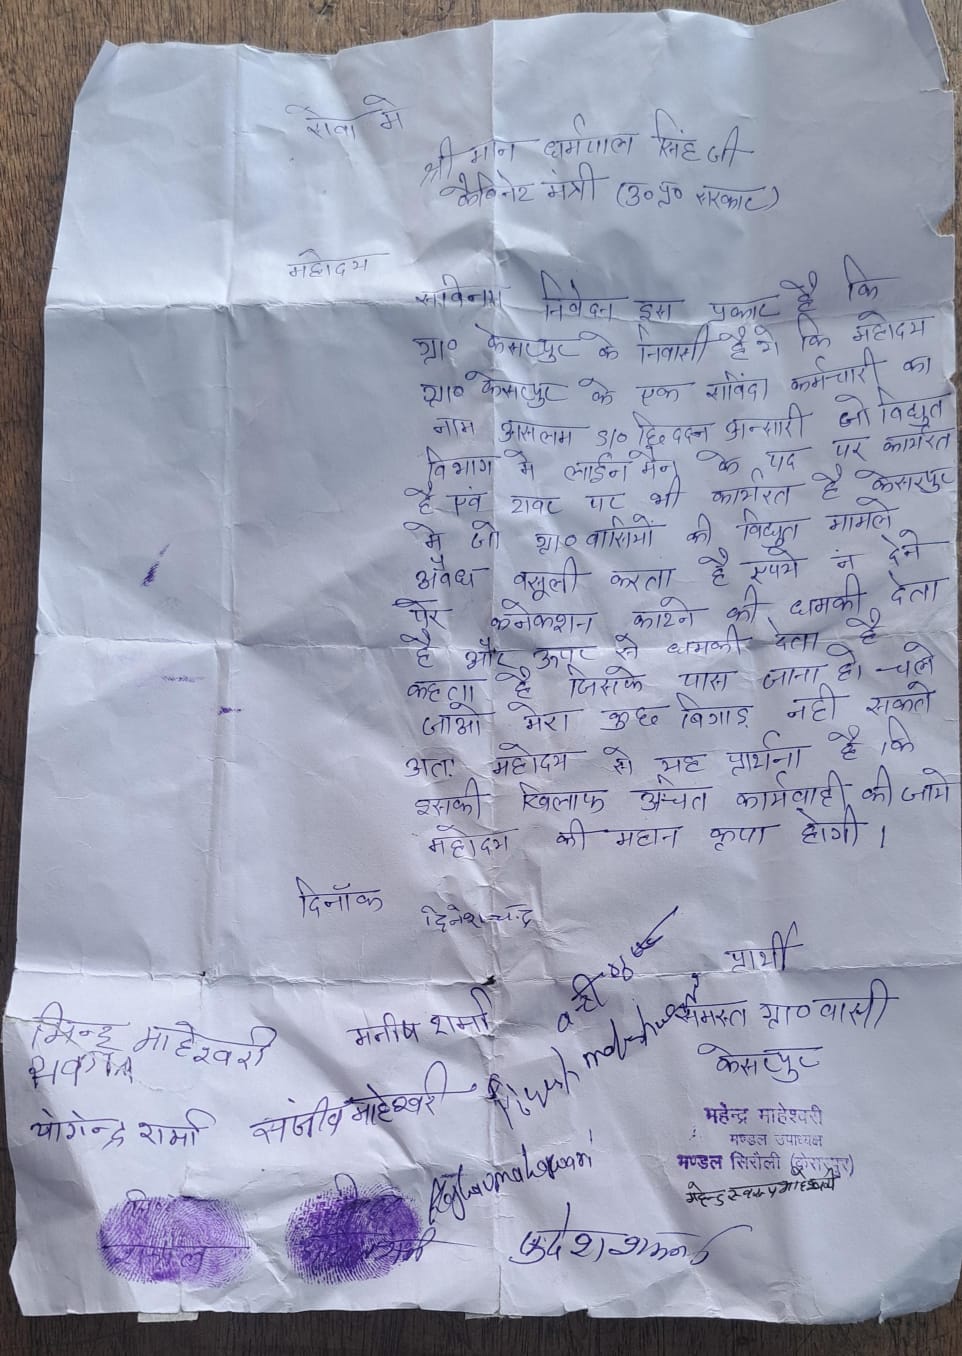 सेवा मे
श्री मान धर्मपाल सिंह जी
कैबिनेट मंत्री (उ०प्र० सरकार)
महोदय
सविनय निवेदन इस प्रकार है कि
ग्रा० केसरपुर के निवासी है कि महोदय
ग्रा० केसरपुर के एक संविदा कर्मचारी का
नाम असलम S/० अन्सारी जो विद्युत
विभाग मे लाईन मैन के पद पर कार्यरत
है एवं पर भी कार्यरत है केसरपुर
मे जो ग्रा० वासियों की विद्युत मामले
अवैध वसूली करता है रूपये न देने
पर कनेकशन काटने की धमकी देता
है और ऊपर से धमकी देता है
कहता है जिसके पास जाना हो चले
जाओ मेरा कुछ बिगाड़ नही सकते
अतः महोदय से यह प्रार्थना है कि
इसकी खिलाफ उचित कार्यवाही की जाये
महोदय की महान कृपा होगी ।
दिनॉक
दिनेश चन्द्र
प्रार्थी
समस्त ग्रा० वासी
केसरपुर
माहेश्वरी
मनीष शर्मा
योगेन्द्र शर्मा
संजीव माहेश्वरी
महेन्द्र माहेश्वरी
मण्डल उपाध्यक्ष
मण्डल सिरौली